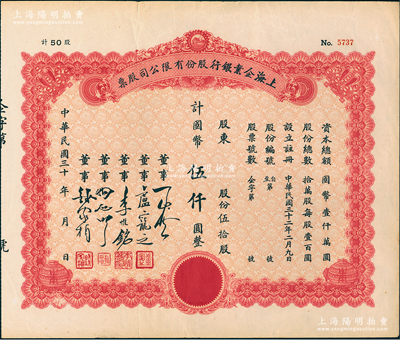 上海陽明拍賣
計50股
No. 5737
上海企業銀行股份有限公司股票
資本總額 國幣壹仟萬圓
股份總數 拾萬股每股壹百圓
設立註冊 中華民國三十二年二月九日
股份編號 自 至 號
股票號數 企字第 號
股東 股份伍拾股
計國幣 伍仟圓整
董事
董事
董事 李
董事
董事
中華民國三十 年 月 日
企字第
號
上海陽明拍賣